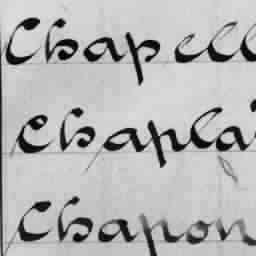 Chapell
Chapla
Chapon